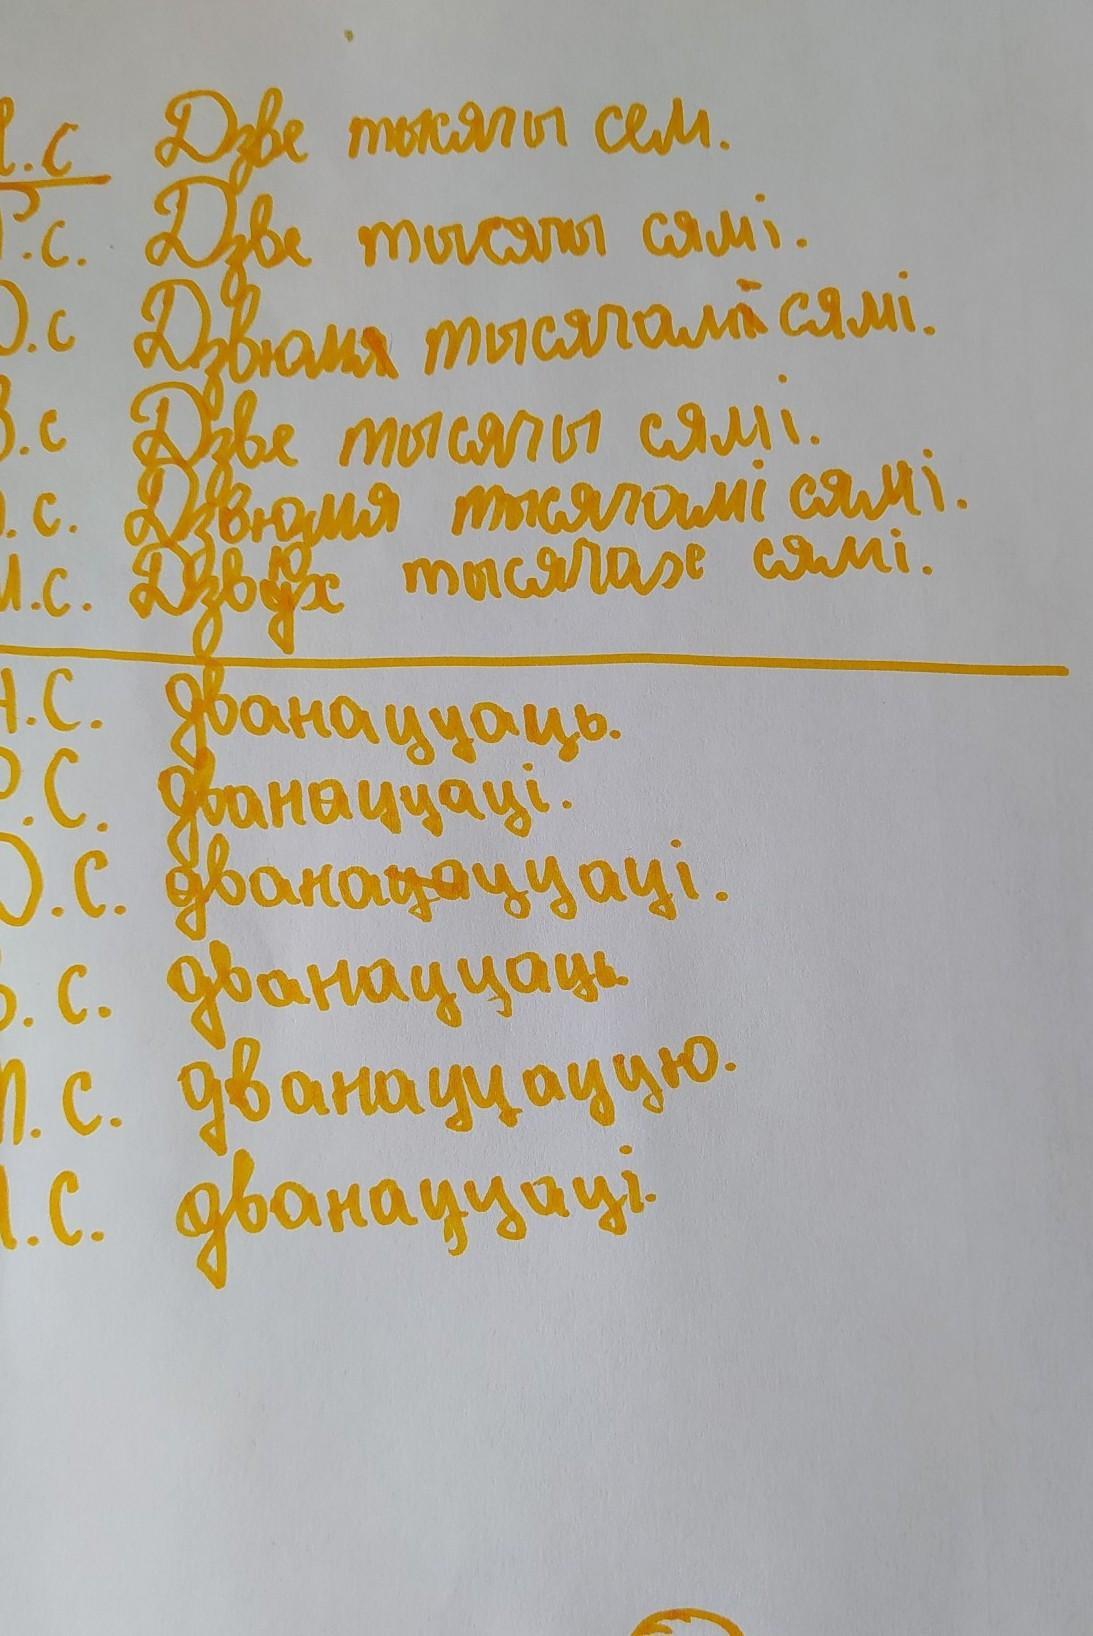 Н.с Дзве тысячы сем.
Р.с. Дзве тысячы сямі.
Д.с Дзвюмя тысячамі сямі.
В.с Дзве тысячы сямі.
Т.с. Дзвюмя тысячамі сямі.
М.с. Дзвюх тысячах сямі.
Н.С. дванаццаць.
Р.С. дванаццаці.
Д.С. дванаццаці.
В.С. дванаццаць
Т.С. дванаццаццю.
М.С. дванаццаці.